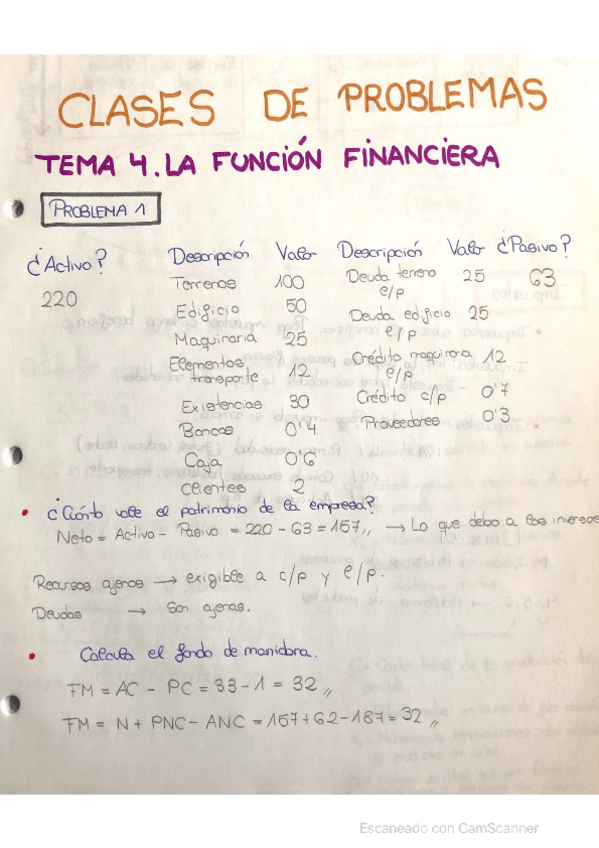 CLASES DE PROBLEMAS
TEMA 4. LA FUNCIÓN FINANCIERA
PROBLEMA 1
¿Activo? Descripción Valor Descripción Valor ¿Pasivo?
220 Terrenos 100 Deuda terreno e/p 25 63
Edificio 50 Deuda edificio e/p 25
Maquinaria 25 Crédito maquinora e/p 12
Elementos transporte 12 Crédito c/p 0'7
Existencias 30 Proveedores 0'3
Bancos 0'4
Caja 0'6
Clientes 2
• ¿Cuánto vale el patrimonio de la empresa?
Neto = Activo - Pasivo = 220 - 63 = 157,, → Lo que debo a los inversores
Recursos ajenos → exigible a c/p y e/p.
Deudas → Son ajenas.
• Calcula el fondo de maniobra.
FM = AC - PC = 33 - 1 = 32,,
FM = N + PNC - ANC = 157 + 62 - 187 = 32,,
Escaneado con CamScanner